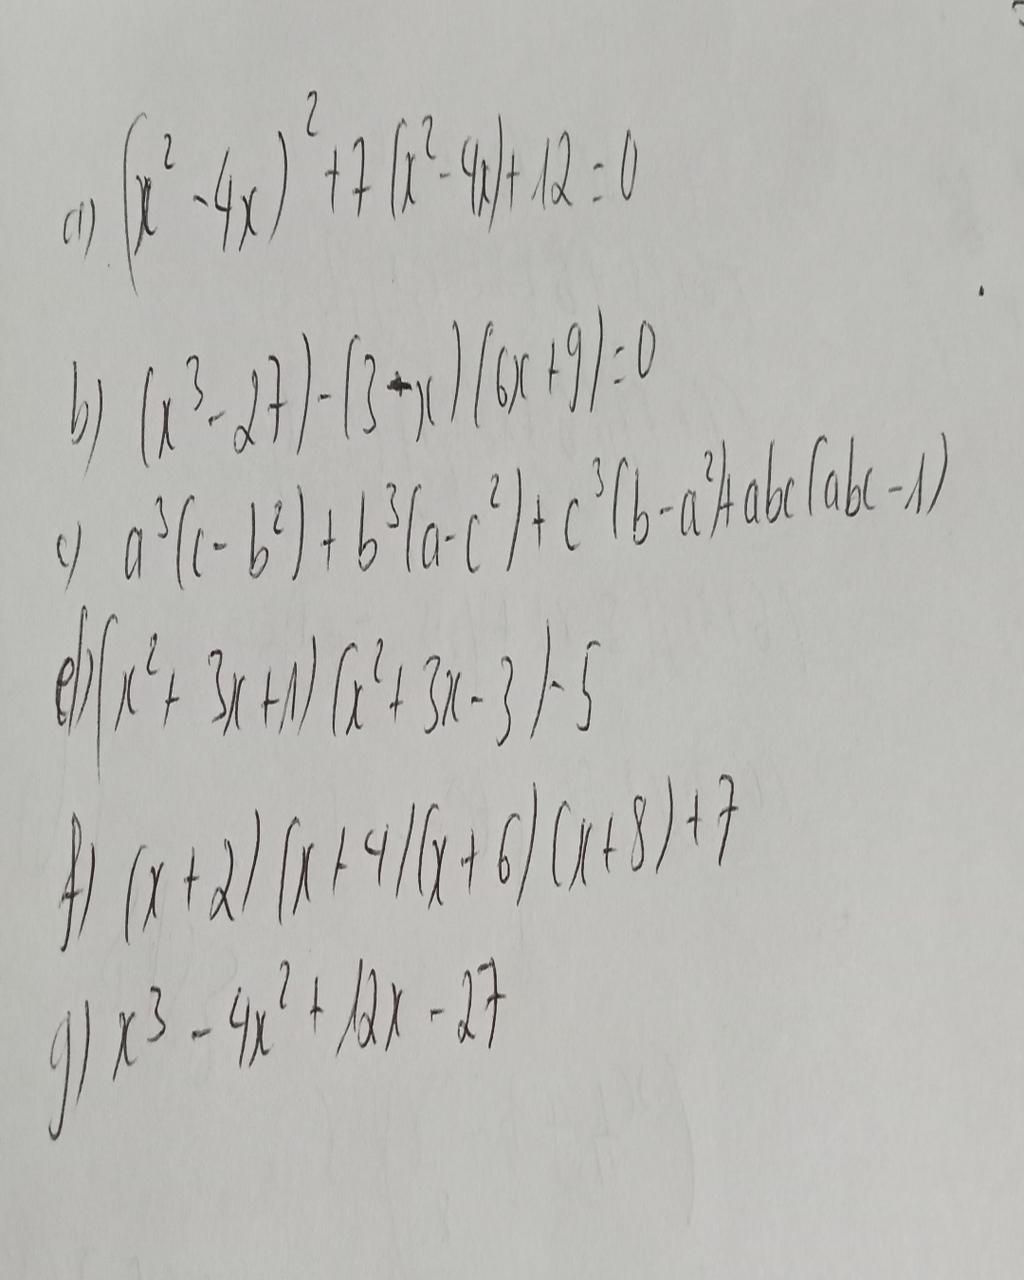 a) (x² - 4x)² + 7(x² - 4x) + 12 = 0
b) (x³ - 27) - (3 - x)(6x + 9) = 0
c) a³(c - b²) + b³(a - c²) + c³(b - a²) + abc(abc - 1)
d) (x² + 3x + 1)(x² + 3x - 3) - 5
f) (x + 2)(x + 4)(x + 6)(x + 8) + 7
g) x³ - 4x² + 12x - 27